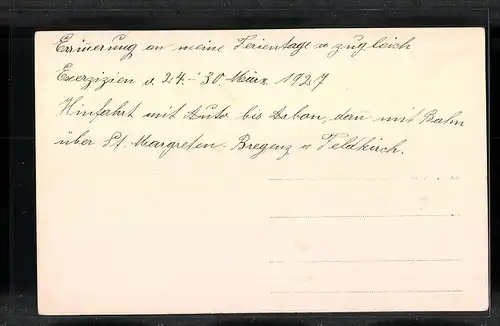 Erinerung an meine Ferientage u zugleich
Exerzizien v. 24.-30. März 1927
Hinfahrt mit Auto bis Arbon, dan̄ mit Bahn
über St. Margreten-Bregenz u Feldkirch.